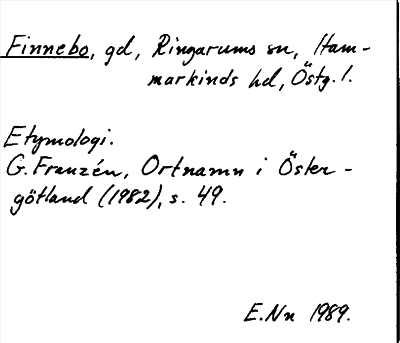 Finnebo, gd, Ringarums sn, Ham-
markinds hd, Östg. l.
Etymologi.
G. Franzén, Ortnamn i Öster-
götland (1982), s. 49.
E. Nn 1989.